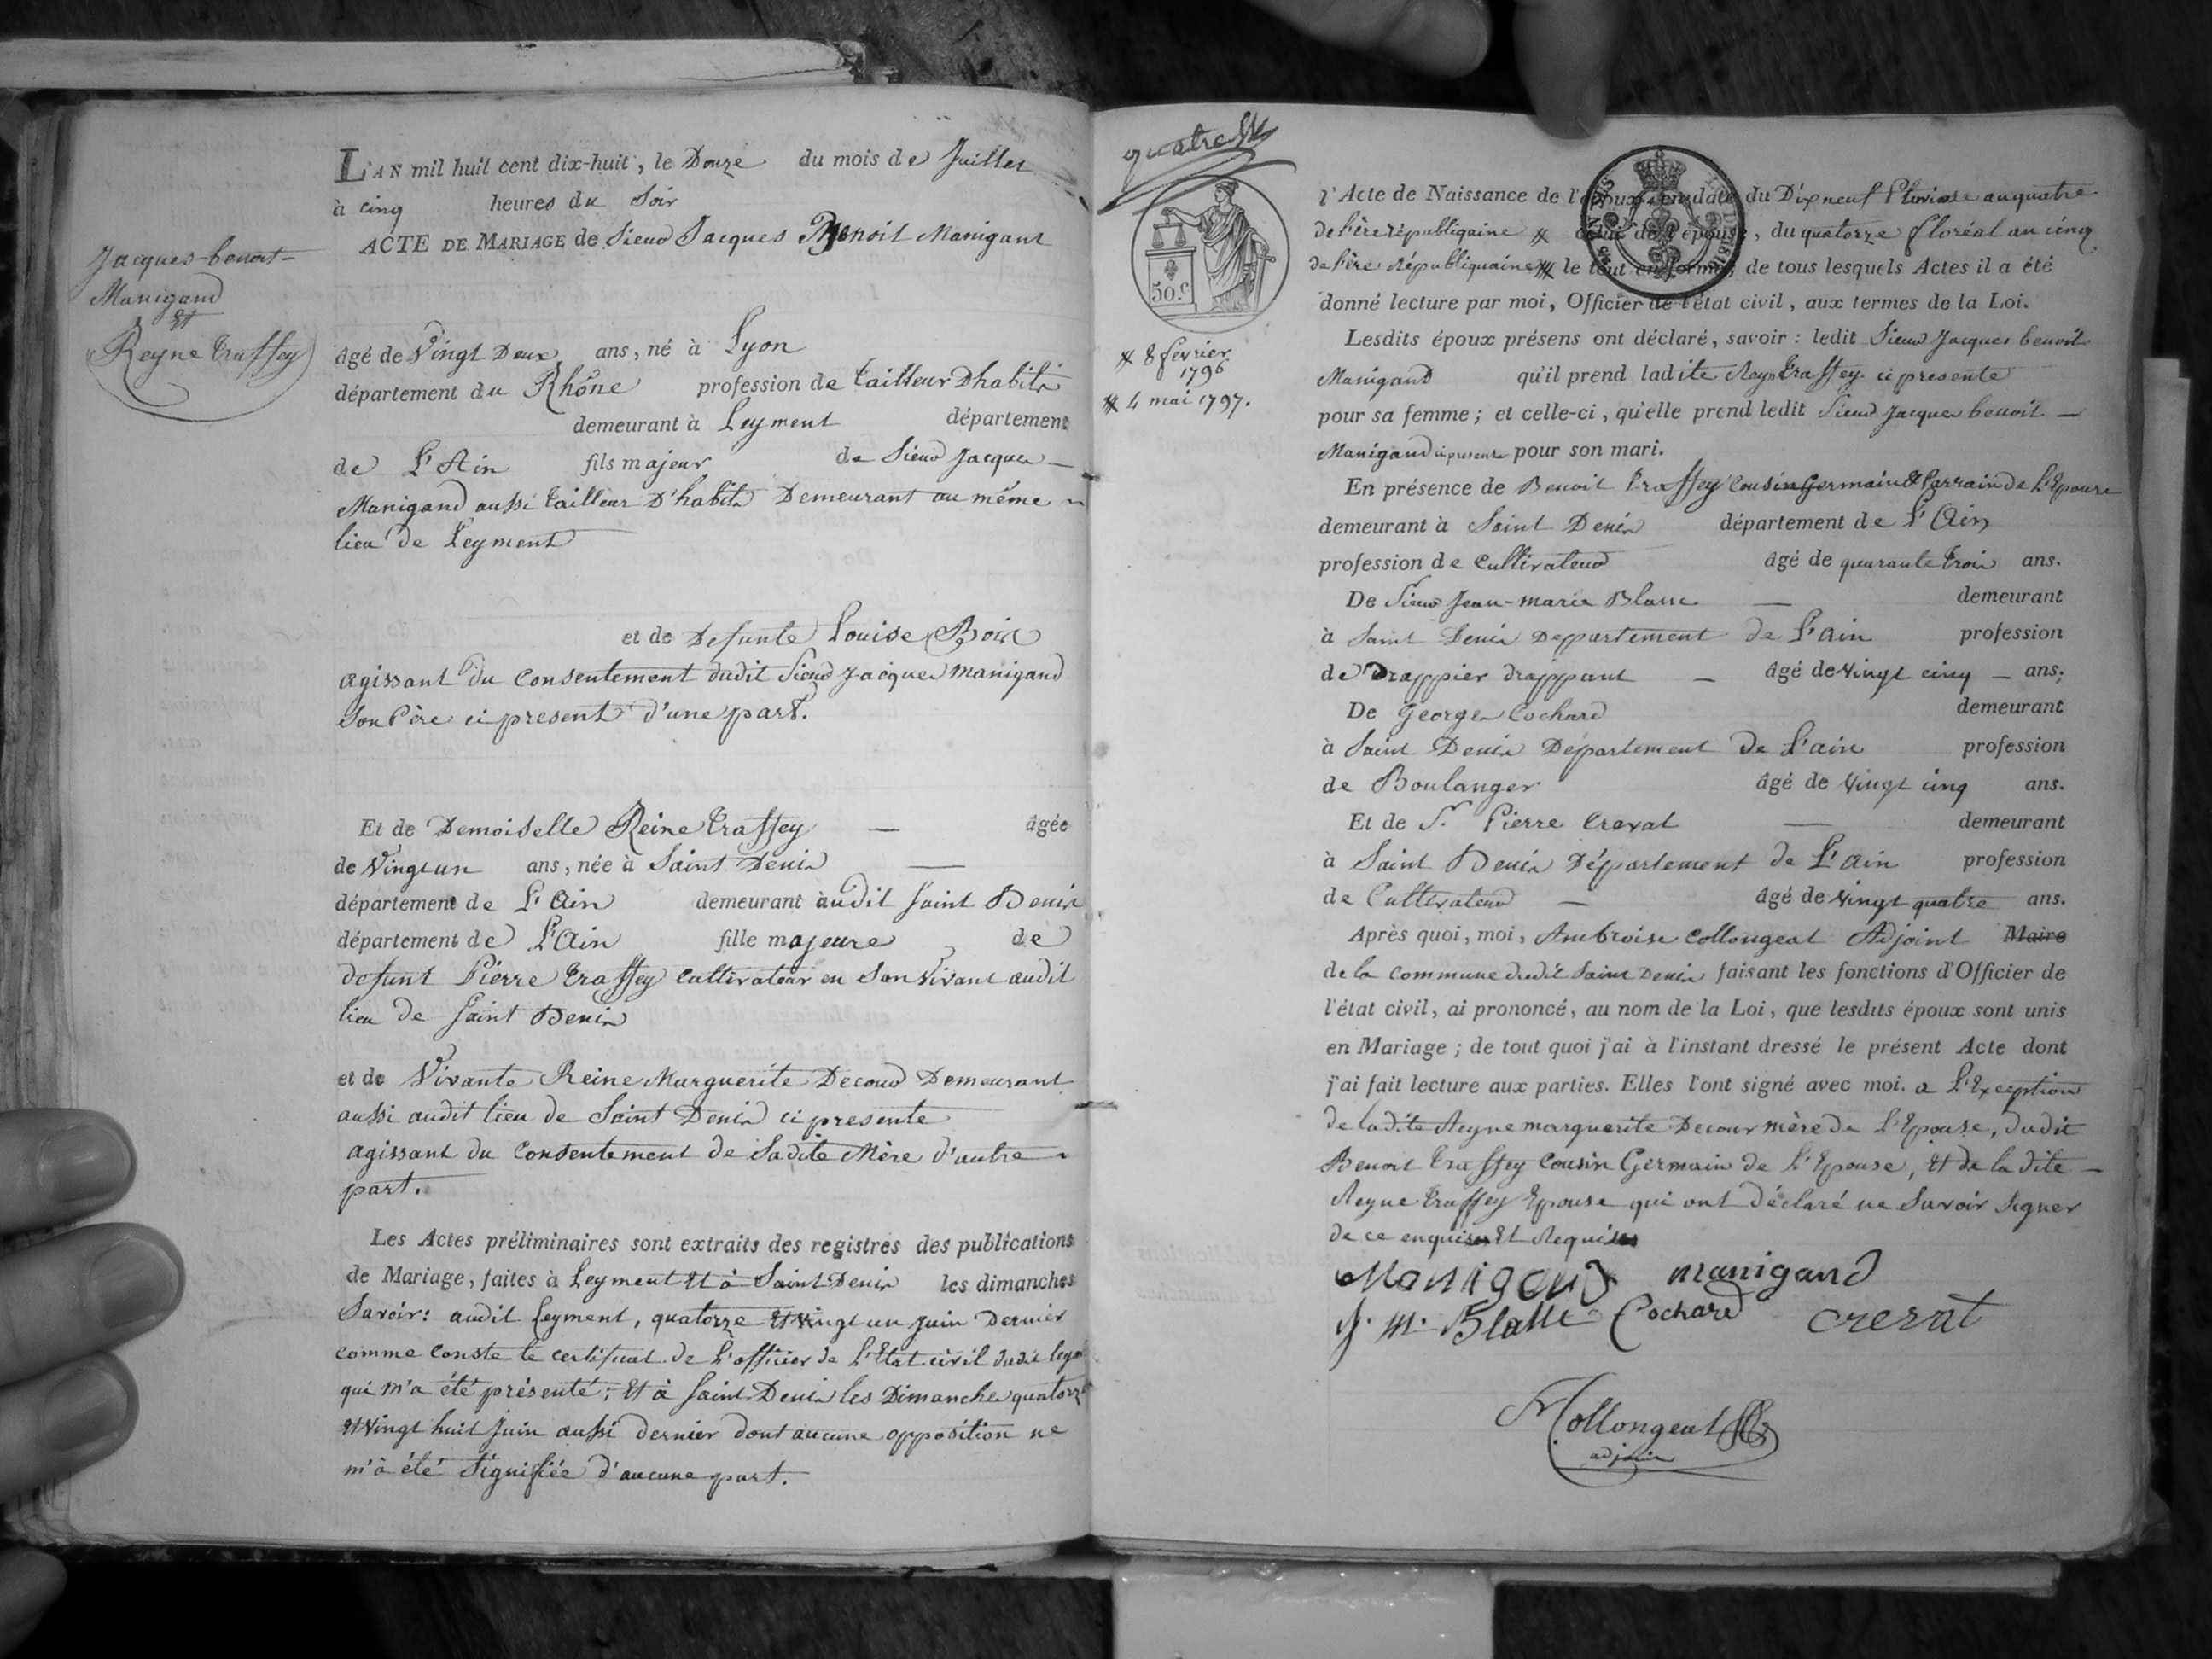 Jacques-benoit-
Manigand
Et
Reyne traffey
L'AN mil huit cent dix-huit, le Douze du mois de Juillet
à cinq heures du Soir
ACTE DE MARIAGE de Sieur Jacques Benoit Manigant
âgé de Vingt Deux ans, né à Lyon
département du Rhône profession de tailleur D'habits
demeurant à Leyment département
de L'Ain fils majeur de Sieur Jacques —
Manigand aussi tailleur D'habits Demeurant au même
lieu de Leyment
et de Defunte Louise Bois
agissant du Consentement dudit Sieur Jacques Manigand
son Père ci present d'une part.
Et de Demoiselle Reine traffey — âgée
de Vingt un ans, née à Saint Denis —
département de L'Ain demeurant audit Saint Denis
département de L'Ain fille majeure de
defunt Pierre traffey cultivateur en son vivant audit
lieu de Saint Denis
et de Vivante Reine Marguerite Decour Demeurant
aussi audit lieu de Saint Denis ci presente
agissant du Consentement de Sadite Mère d'autre
part.
Les Actes préliminaires sont extraits des registres des publications
de Mariage, faites à Leyment et à Saint Denis les dimanches
Savoir: audit Leyment, quatorze et vingt un juin Dernier
comme conste le certificat de L'officier de L'Etat civil dudit
qui m'a été présenté; et à Saint Denis les Dimanches quatorze
et vingt huit Juin aussi dernier dont aucune opposition ne
m'a été signifiée d'aucune part.
quatre
50.c
※ 8 fevrier
1796
※ 4 mai 1797.
l'Acte de Naissance de l'époux, en date du Dix neuf Pluviose an quatre
de l'ère républiquaine ※ celui de l'épouse, du quatorze floréal an cinq
de l'ère républiquaine ※ le tout en forme; de tous lesquels Actes il a été
donné lecture par moi, Officier de l'état civil, aux termes de la Loi.
Lesdits époux présens ont déclaré, savoir: ledit Sieur Jacques benoit
Manigand qu'il prend ladite Reyne traffey ci presente
pour sa femme; et celle-ci, qu'elle prend ledit Sieur Jacques benoit —
Manigand ci present pour son mari.
En présence de Benoit traffey Cousin Germain & Parrain de L'Epouse
demeurant à Saint Denis département de L'Ain
profession de Cultivateur âgé de quarante trois ans.
De Sieur Jean-marie Blanc — demeurant
à Saint Denis Département de L'ain profession
de Drappier drappant — âgé de vingt cinq — ans;
De George Cochard demeurant
à Saint Denis Département de L'ain profession
de Boulanger âgé de Vingt cinq ans.
Et de S.r Pierre Creval — demeurant
à Saint Denis Département de L'Ain profession
de Cultivateur — âgé de vingt quatre ans.
Après quoi, moi, Ambroise Collongeat Adjoint Maire
de la commune dudit Saint Denis faisant les fonctions d'Officier de
l'état civil, ai prononcé, au nom de la Loi, que lesdits époux sont unis
en Mariage; de tout quoi j'ai à l'instant dressé le présent Acte dont
j'ai fait lecture aux parties. Elles l'ont signé avec moi. a L'Exception
de ladite Reyne marguerite Decour mère de L'Epouse, dudit
Benoit traffey Cousin Germain de L'Epouse, Et de la dite —
Reyne traffey Epouse qui ont déclaré ne Savoir signer
de ce enquis Et Requis
Manigand manigand
J. M. Cochard crerat
Collongeat
adjoint